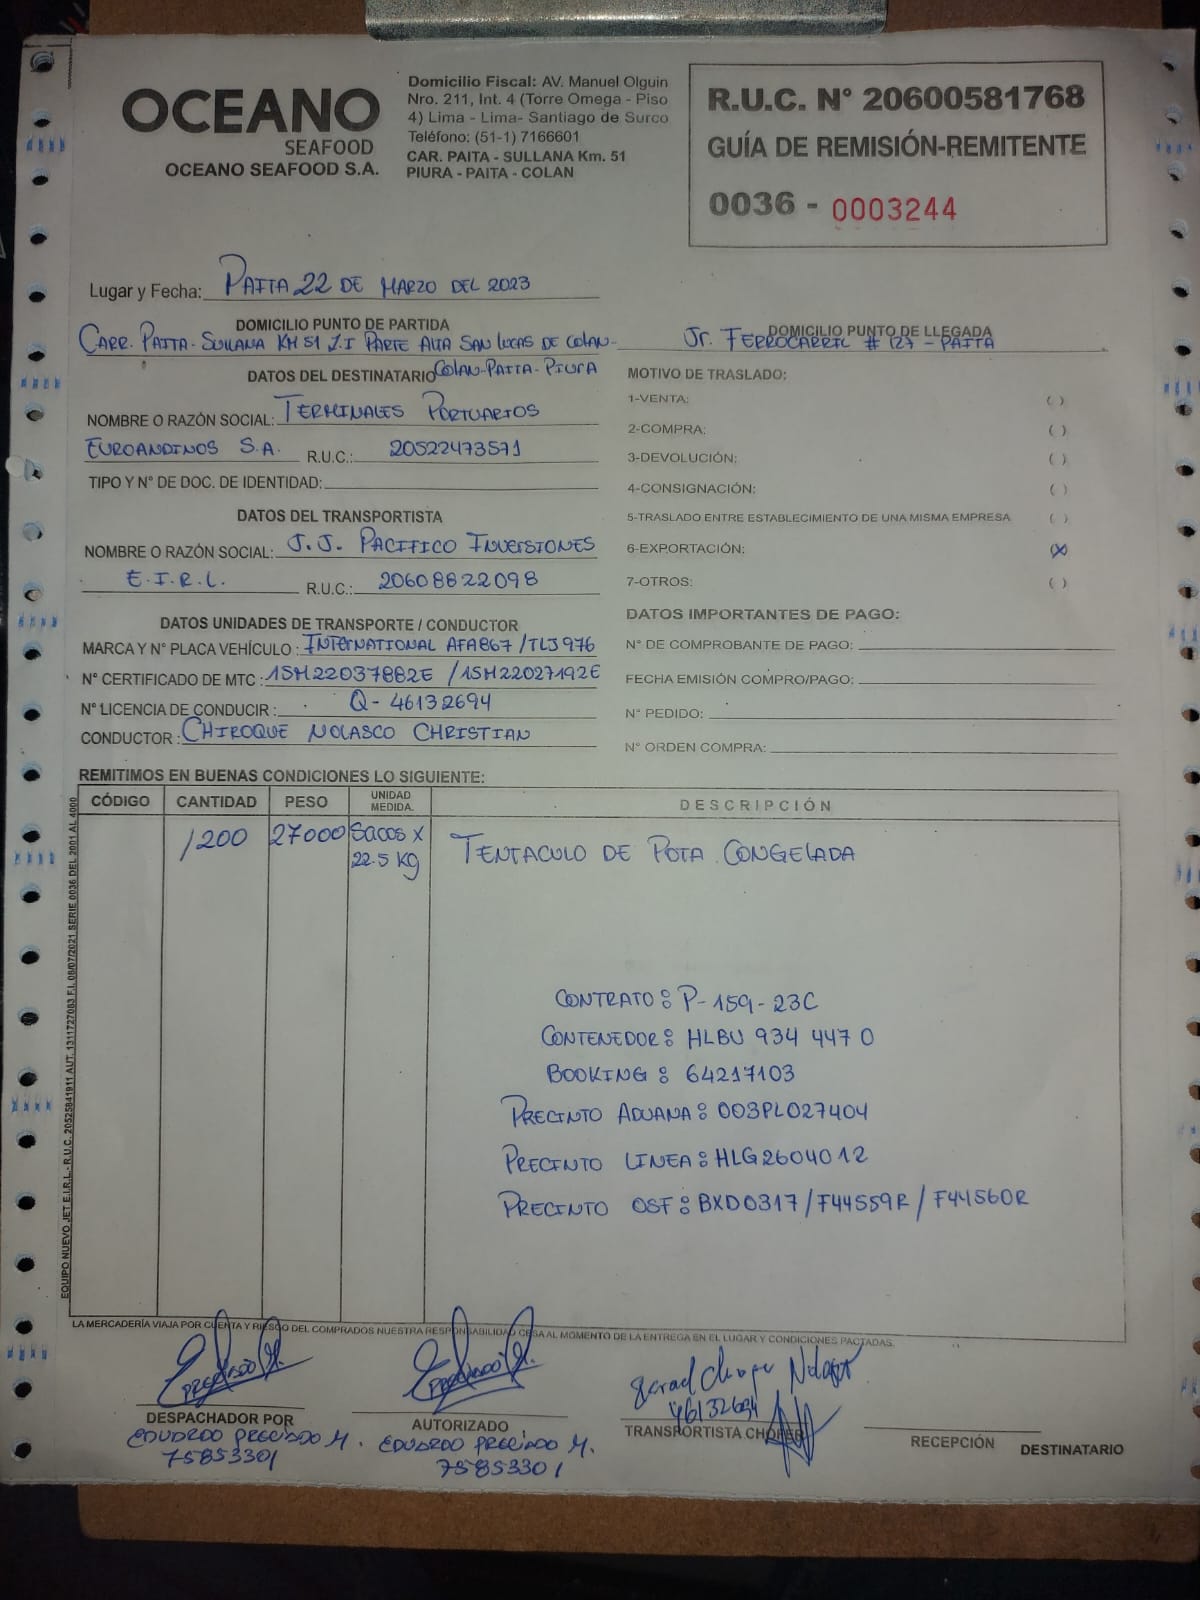 OCEANO
SEAFOOD
OCEANO SEAFOOD S.A.
Domicilio Fiscal: AV. Manuel Olguin
Nro. 211, Int. 4 (Torre Omega - Piso
4) Lima - Lima- Santiago de Surco
Teléfono: (51-1) 7166601
CAR. PAITA - SULLANA Km. 51
PIURA - PAITA - COLAN
R.U.C. N° 20600581768
GUÍA DE REMISIÓN-REMITENTE
0036 - 0003244
Lugar y Fecha: PAITA 22 DE MARZO DEL 2023
DOMICILIO PUNTO DE PARTIDA
CARR. PAITA- SULLANA KM 51 Z.I PARTE ALTA SAN LUCAS DE COLAN-
COLAN-PAITA-PIURA
DOMICILIO PUNTO DE LLEGADA
Jr. FERROCARRIL # 127 - PAITA
DATOS DEL DESTINATARIO
NOMBRE O RAZÓN SOCIAL: TERMINALES PORTUARIOS
EUROANDINOS S.A. R.U.C.: 20522473571
TIPO Y N° DE DOC. DE IDENTIDAD:
DATOS DEL TRANSPORTISTA
NOMBRE O RAZÓN SOCIAL: J.J. PACIFICO INVERSIONES
E.I.R.L. R.U.C.: 20608822098
DATOS UNIDADES DE TRANSPORTE / CONDUCTOR
MARCA Y N° PLACA VEHÍCULO : INTERNATIONAL AFA867 /TLJ976
N° CERTIFICADO DE MTC : 15M22037882E /15M22027192E
N° LICENCIA DE CONDUCIR : Q- 46132694
CONDUCTOR : CHIROQUE NOLASCO CHRISTIAN
MOTIVO DE TRASLADO:
1-VENTA: ( )
2-COMPRA: ( )
3-DEVOLUCIÓN: ( )
4-CONSIGNACIÓN: ( )
5-TRASLADO ENTRE ESTABLECIMIENTO DE UNA MISMA EMPRESA ( )
6-EXPORTACIÓN: (X)
7-OTROS: ( )
DATOS IMPORTANTES DE PAGO:
N° DE COMPROBANTE DE PAGO:
FECHA EMISIÓN COMPRO/PAGO:
N° PEDIDO:
N° ORDEN COMPRA:
REMITIMOS EN BUENAS CONDICIONES LO SIGUIENTE:
CÓDIGO CANTIDAD PESO UNIDAD MEDIDA. DESCRIPCIÓN
1200 27000 Sacos x 22.5 KG TENTACULO DE POTA CONGELADA
CONTRATO: P-159-23C
CONTENEDOR: HLBU 934 447 0
BOOKING : 64217103
PRECINTO ADUANA: 003PL027404
PRECINTO LINEA: HLG2604012
PRECINTO OSF: BXD0317/F44559R/F44560R
EQUIPO NUEVO JET E.I.R.L.- R.U.C. 20525841911 AUT. 1311727083 F.I. 08/07/2021 SERIE 0036 DEL 2001 AL 4000
LA MERCADERÍA VIAJA POR CUENTA Y RIESGO DEL COMPRADOS NUESTRA RESPONSABILIDAD CESA AL MOMENTO DE LA ENTREGA EN EL LUGAR Y CONDICIONES PACTADAS.
DESPACHADOR POR
EDUARDO PRECIADO M.
75853301
AUTORIZADO
EDUARDO PRECIADO M.
75853301
46132694
TRANSPORTISTA CHOFER
RECEPCIÓN
DESTINATARIO